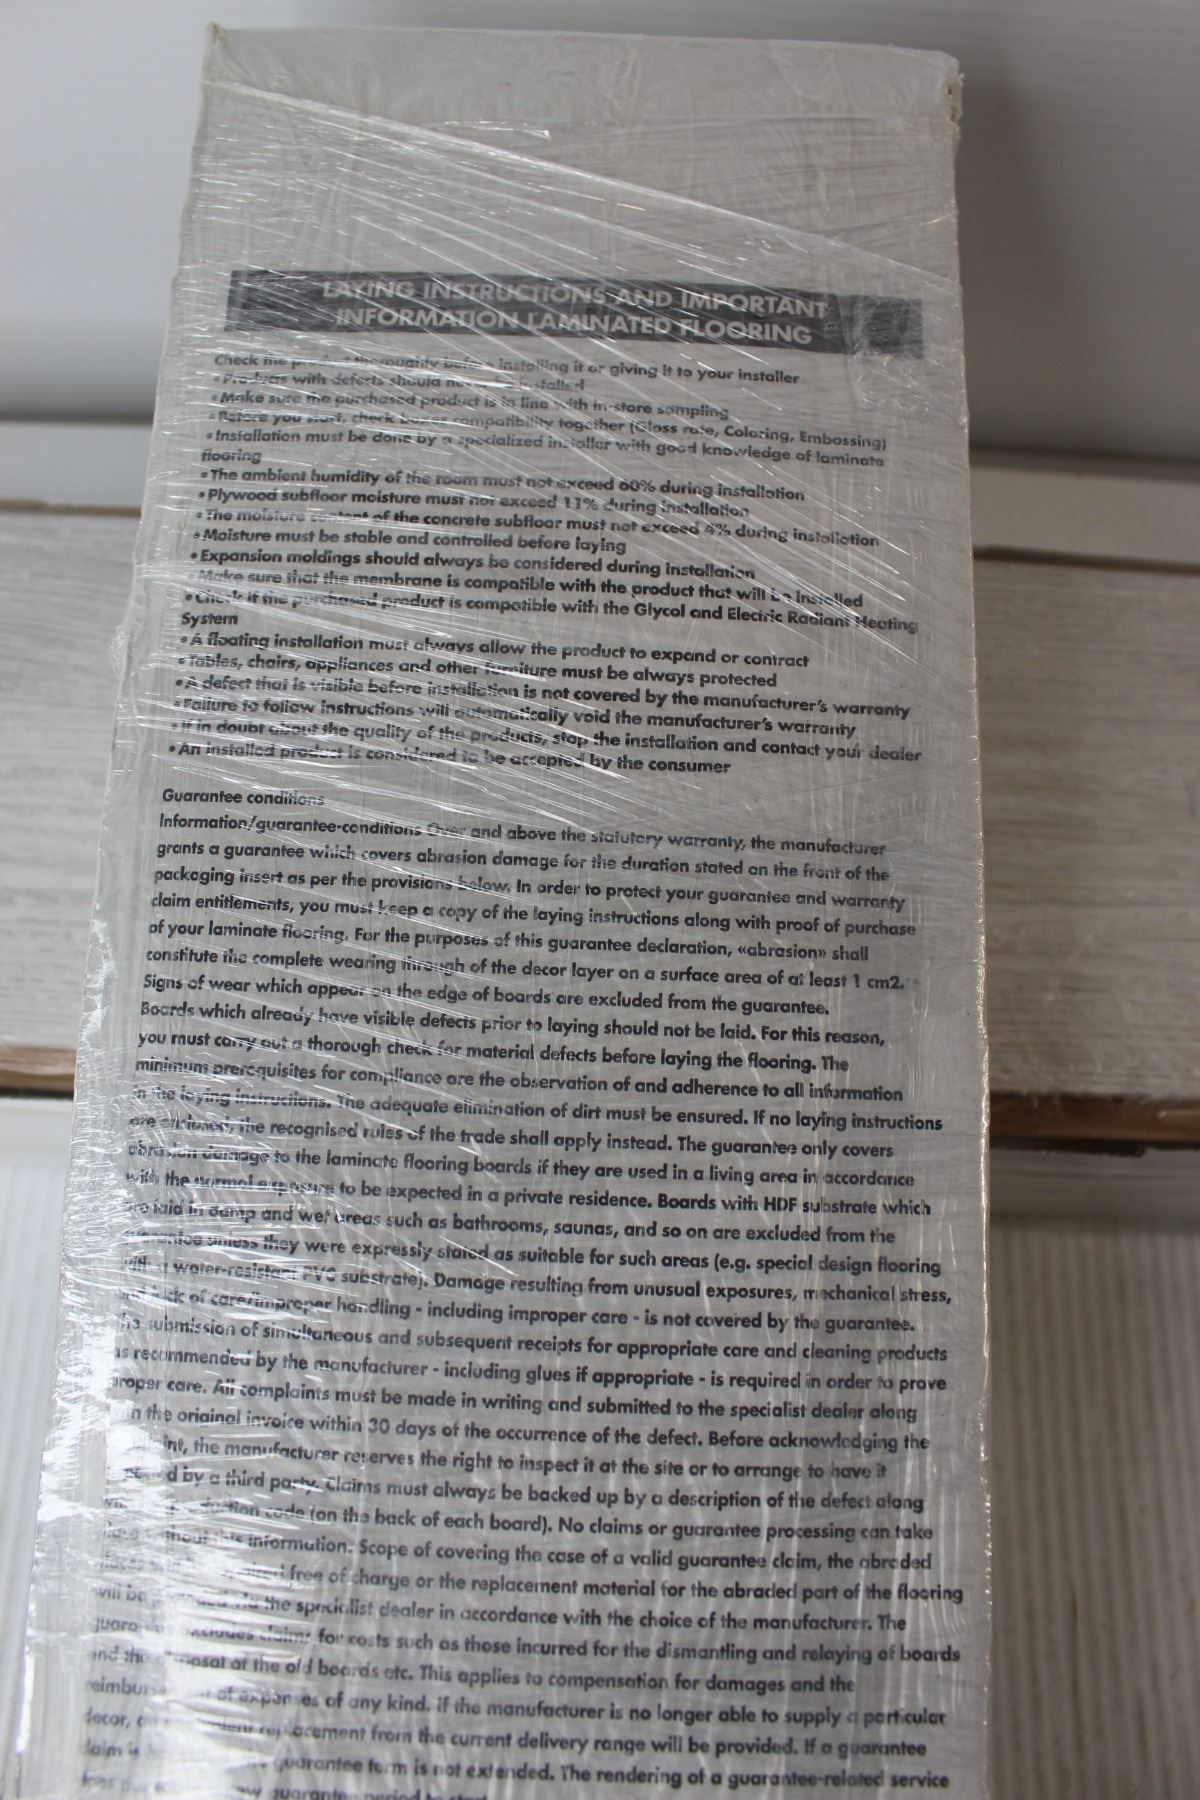 LAYING INSTRUCTIONS AND IMPORTANT
INFORMATION LAMINATED FLOORING
Check the product thoroughly before installing it or giving it to your installer
• Products with defects should not be installed
• Make sure the purchased product is in line with in-store sampling
• Before you start, check boxes compatibility together (Gloss rate, Coloring, Embossing)
• Installation must be done by a specialized installer with good knowledge of laminate
flooring
• The ambient humidity of the room must not exceed 60% during installation
• Plywood subfloor moisture must not exceed 11% during installation
• The moisture content of the concrete subfloor must not exceed 4% during installation
• Moisture must be stable and controlled before laying
• Expansion moldings should always be considered during installation
• Make sure that the membrane is compatible with the product that will be installed
• Check if the purchased product is compatible with the Glycol and Electric Radiant Heating
System
• A floating installation must always allow the product to expand or contract
• Tables, chairs, appliances and other furniture must be always protected
• A defect that is visible before installation is not covered by the manufacturer's warranty
• Failure to follow instructions will automatically void the manufacturer's warranty
• If in doubt about the quality of the products, stop the installation and contact your dealer
• An installed product is considered to be accepted by the consumer
Guarantee conditions
Information/guarantee-conditions Over and above the statutory warranty, the manufacturer
grants a guarantee which covers abrasion damage for the duration stated on the front of the
packaging insert as per the provisions below. In order to protect your guarantee and warranty
claim entitlements, you must keep a copy of the laying instructions along with proof of purchase
of your laminate flooring. For the purposes of this guarantee declaration, «abrasion» shall
constitute the complete wearing through of the decor layer on a surface area of at least 1 cm2.
Signs of wear which appear on the edge of boards are excluded from the guarantee.
Boards which already have visible defects prior to laying should not be laid. For this reason,
you must carry out a thorough check for material defects before laying the flooring. The
minimum prerequisites for compliance are the observation of and adherence to all information
in the laying instructions. The adequate elimination of dirt must be ensured. If no laying instructions
are enclosed, the recognised rules of the trade shall apply instead. The guarantee only covers
abrasion damage to the laminate flooring boards if they are used in a living area in accordance
with the normal exposure to be expected in a private residence. Boards with HDF substrate which
are laid in damp and wet areas such as bathrooms, saunas, and so on are excluded from the
guarantee unless they were expressly stated as suitable for such areas (e.g. special design flooring
with a water-resistant PVC substrate). Damage resulting from unusual exposures, mechanical stress,
and lack of care/improper handling - including improper care - is not covered by the guarantee.
The submission of simultaneous and subsequent receipts for appropriate care and cleaning products
as recommended by the manufacturer - including glues if appropriate - is required in order to prove
proper care. All complaints must be made in writing and submitted to the specialist dealer along
the original invoice within 30 days of the occurrence of the defect. Before acknowledging the
the manufacturer reserves the right to inspect it at the site or to arrange to have it
by a third party. Claims must always be backed up by a description of the defect along
production code (on the back of each board). No claims or guarantee processing can take
place without this information. Scope of covering the case of a valid guarantee claim, the abraded
free of charge or the replacement material for the abraded part of the flooring
will be via the specialist dealer in accordance with the choice of the manufacturer. The
excludes claims for costs such as those incurred for the dismantling and relaying of boards
and the disposal of the old boards etc. This applies to compensation for damages and the
of expenses of any kind. If the manufacturer is no longer able to supply a particular
decor, replacement from the current delivery range will be provided. If a guarantee
claim is guarantee term is not extended. The rendering of a guarantee-related service
guarantee period to start